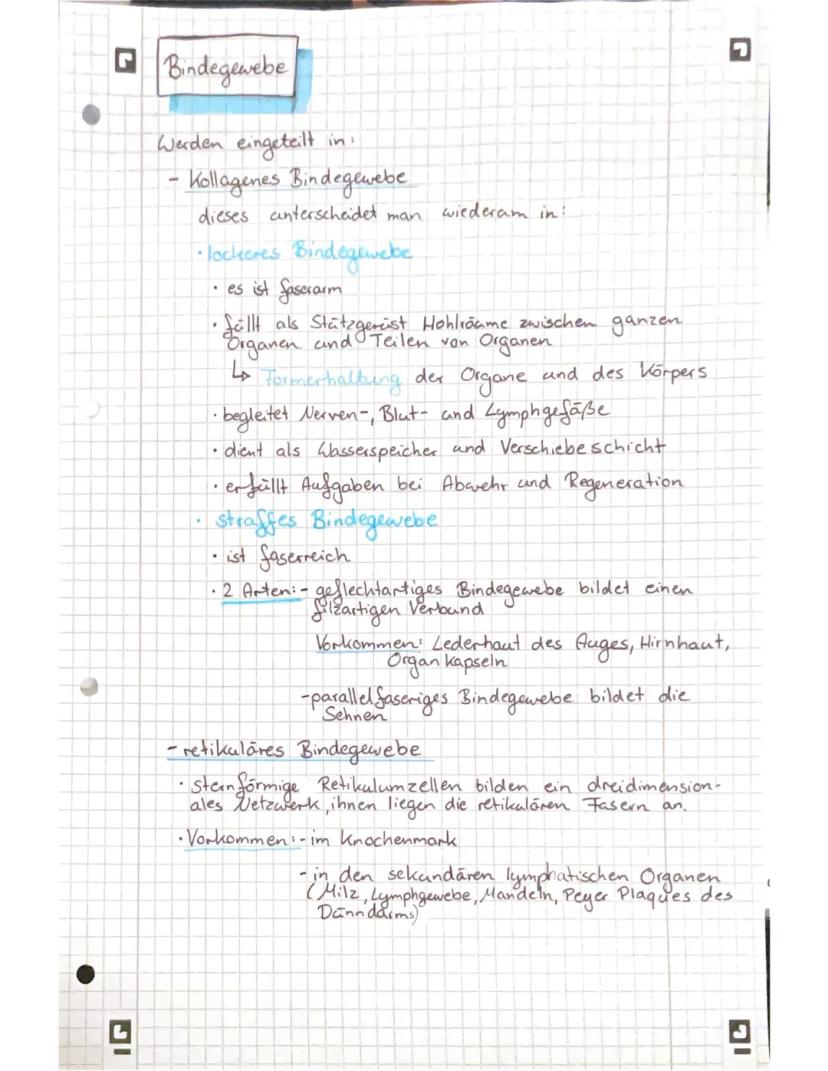 Bindegewebe
Werden eingeteilt in:
- Kollagenes Bindegewebe
dieses unterscheidet man wiederum in:
· lockeres Bindegewebe
· es ist faserarm
· füllt als Stützgerüst Hohlräume zwischen ganzen
Organen und Teilen von Organen
↳ Formerhaltung der Organe und des Körpers
· begleitet Nerven-, Blut- und Lymphgefäße
· dient als Wasserspeicher und Verschiebeschicht
· erfüllt Aufgaben bei Abwehr und Regeneration
· straffes Bindegewebe
· ist faserreich
· 2 Arten: - geflechtartiges Bindegewebe bildet einen
filzartigen Verbund
Vorkommen: Lederhaut des Auges, Hirnhaut,
Organkapseln
- parallelfaseriges Bindegewebe bildet die
Sehnen
- retikuläres Bindegewebe
· Sternförmige Retikulumzellen bilden ein dreidimension-
ales Netzwerk, ihnen liegen die retikulären Fasern an.
· Vorkommen: - im Knochenmark
- in den sekundären lymphatischen Organen
(Milz, Lymphgewebe, Mandeln, Peyer Plaques des
Dünndarms)